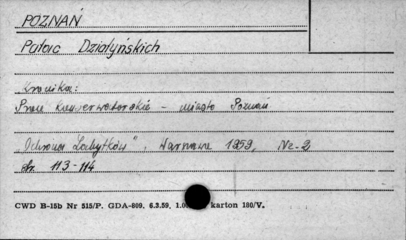 POZNAŃ
Pałac Działyńskich
Kronika:
Prace konserwatorskie - miasto Poznań
"Ochrona Zabytków", Warszawa 1959, Nr. 2
str. 113-114
CWD B-15b Nr 515/P. GDA-809. 6.2.59, karton 180/V.